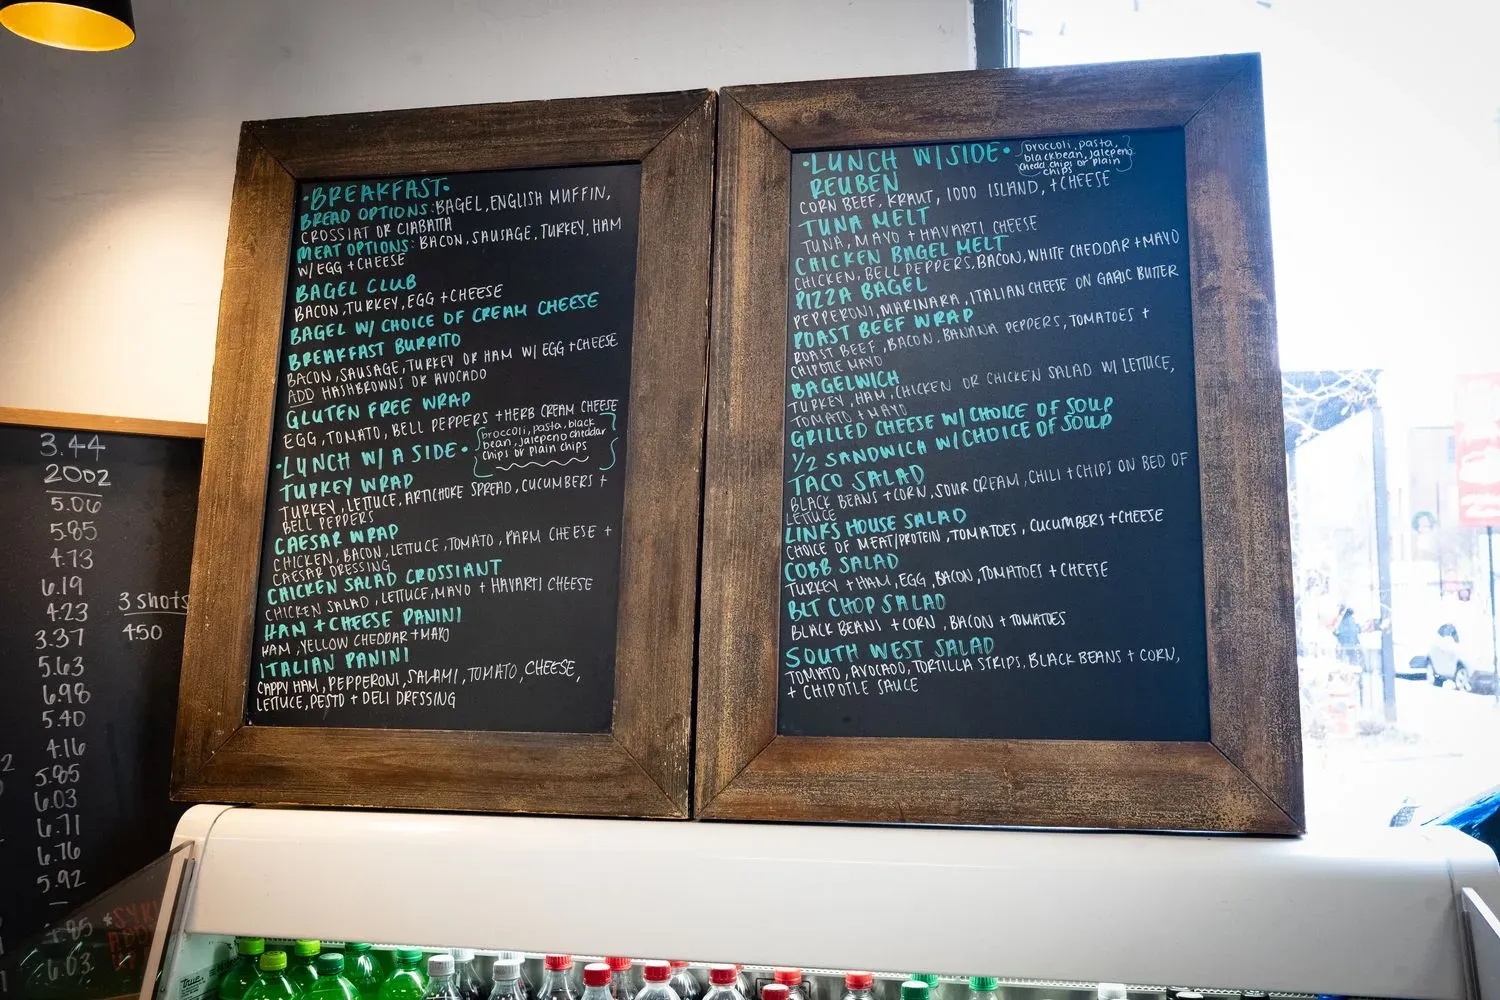 ·BREAKFAST·
BREAD OPTIONS: BAGEL, ENGLISH MUFFIN,
CROSSIAT OR CIABATTA
MEAT OPTIONS: BACON, SAUSAGE, TURKEY, HAM
W/ EGG + CHEESE
BAGEL CLUB
BACON, TURKEY, EGG + CHEESE
BAGEL W/ CHOICE OF CREAM CHEESE
BREAKFAST BURRITO
BACON, SAUSAGE, TURKEY OR HAM W/ EGG + CHEESE
ADD HASHBROWNS OR AVOCADO
GLUTEN FREE WRAP
EGG, TOMATO, BELL PEPPERS + HERB CREAM CHEESE
·LUNCH W/ A SIDE·
broccoli, pasta, black
bean, jalepeno cheddar
chips or plain chips
TURKEY WRAP
TURKEY, LETTUCE, ARTICHOKE SPREAD, CUCUMBERS +
BELL PEPPERS
CAESAR WRAP
CHICKEN, BACON, LETTUCE, TOMATO, PARM CHEESE +
CAESAR DRESSING
CHICKEN SALAD CROSSIANT
CHICKEN SALAD, LETTUCE, MAYO + HAVARTI CHEESE
HAM + CHEESE PANINI
HAM, YELLOW CHEDDAR + MAYO
ITALIAN PANINI
CAPPY HAM, PEPPERONI, SALAMI, TOMATO, CHEESE,
LETTUCE, PESTO + DELI DRESSING
·LUNCH W/ SIDE·
broccoli, pasta,
blackbean, jalepeno
chedd chips or plain
chips
REUBEN
CORN BEEF, KRAUT, 1000 ISLAND, + CHEESE
TUNA MELT
TUNA, MAYO + HAVARTI CHEESE
CHICKEN BAGEL MELT
CHICKEN, BELL PEPPERS, BACON, WHITE CHEDDAR + MAYO
PIZZA BAGEL
PEPPERONI, MARINARA, ITALIAN CHEESE ON GARLIC BUTTER
ROAST BEEF WRAP
ROAST BEEF, BACON, BANANA PEPPERS, TOMATOES +
CHIPOTLE MAYO
BAGELWICH
TURKEY, HAM, CHICKEN OR CHICKEN SALAD W/ LETTUCE,
TOMATO + MAYO
GRILLED CHEESE W/ CHOICE OF SOUP
1/2 SANDWICH W/ CHOICE OF SOUP
TACO SALAD
BLACK BEANS + CORN, SOUR CREAM, CHILI + CHIPS ON BED OF
LETTUCE
LINKS HOUSE SALAD
CHOICE OF MEAT/PROTEIN, TOMATOES, CUCUMBERS + CHEESE
COBB SALAD
TURKEY + HAM, EGG, BACON, TOMATOES + CHEESE
BLT CHOP SALAD
BLACK BEANS + CORN, BACON + TOMATOES
SOUTH WEST SALAD
TOMATO, AVOCADO, TORTILLA STRIPS, BLACK BEANS + CORN,
+ CHIPOTLE SAUCE
3.44
20oz
5.06
5.85
4.73
6.19
4.23
3.37
5.63
6.98
5.40
4.16
5.85
6.03
6.71
6.76
5.92
6.03
3 shots
450